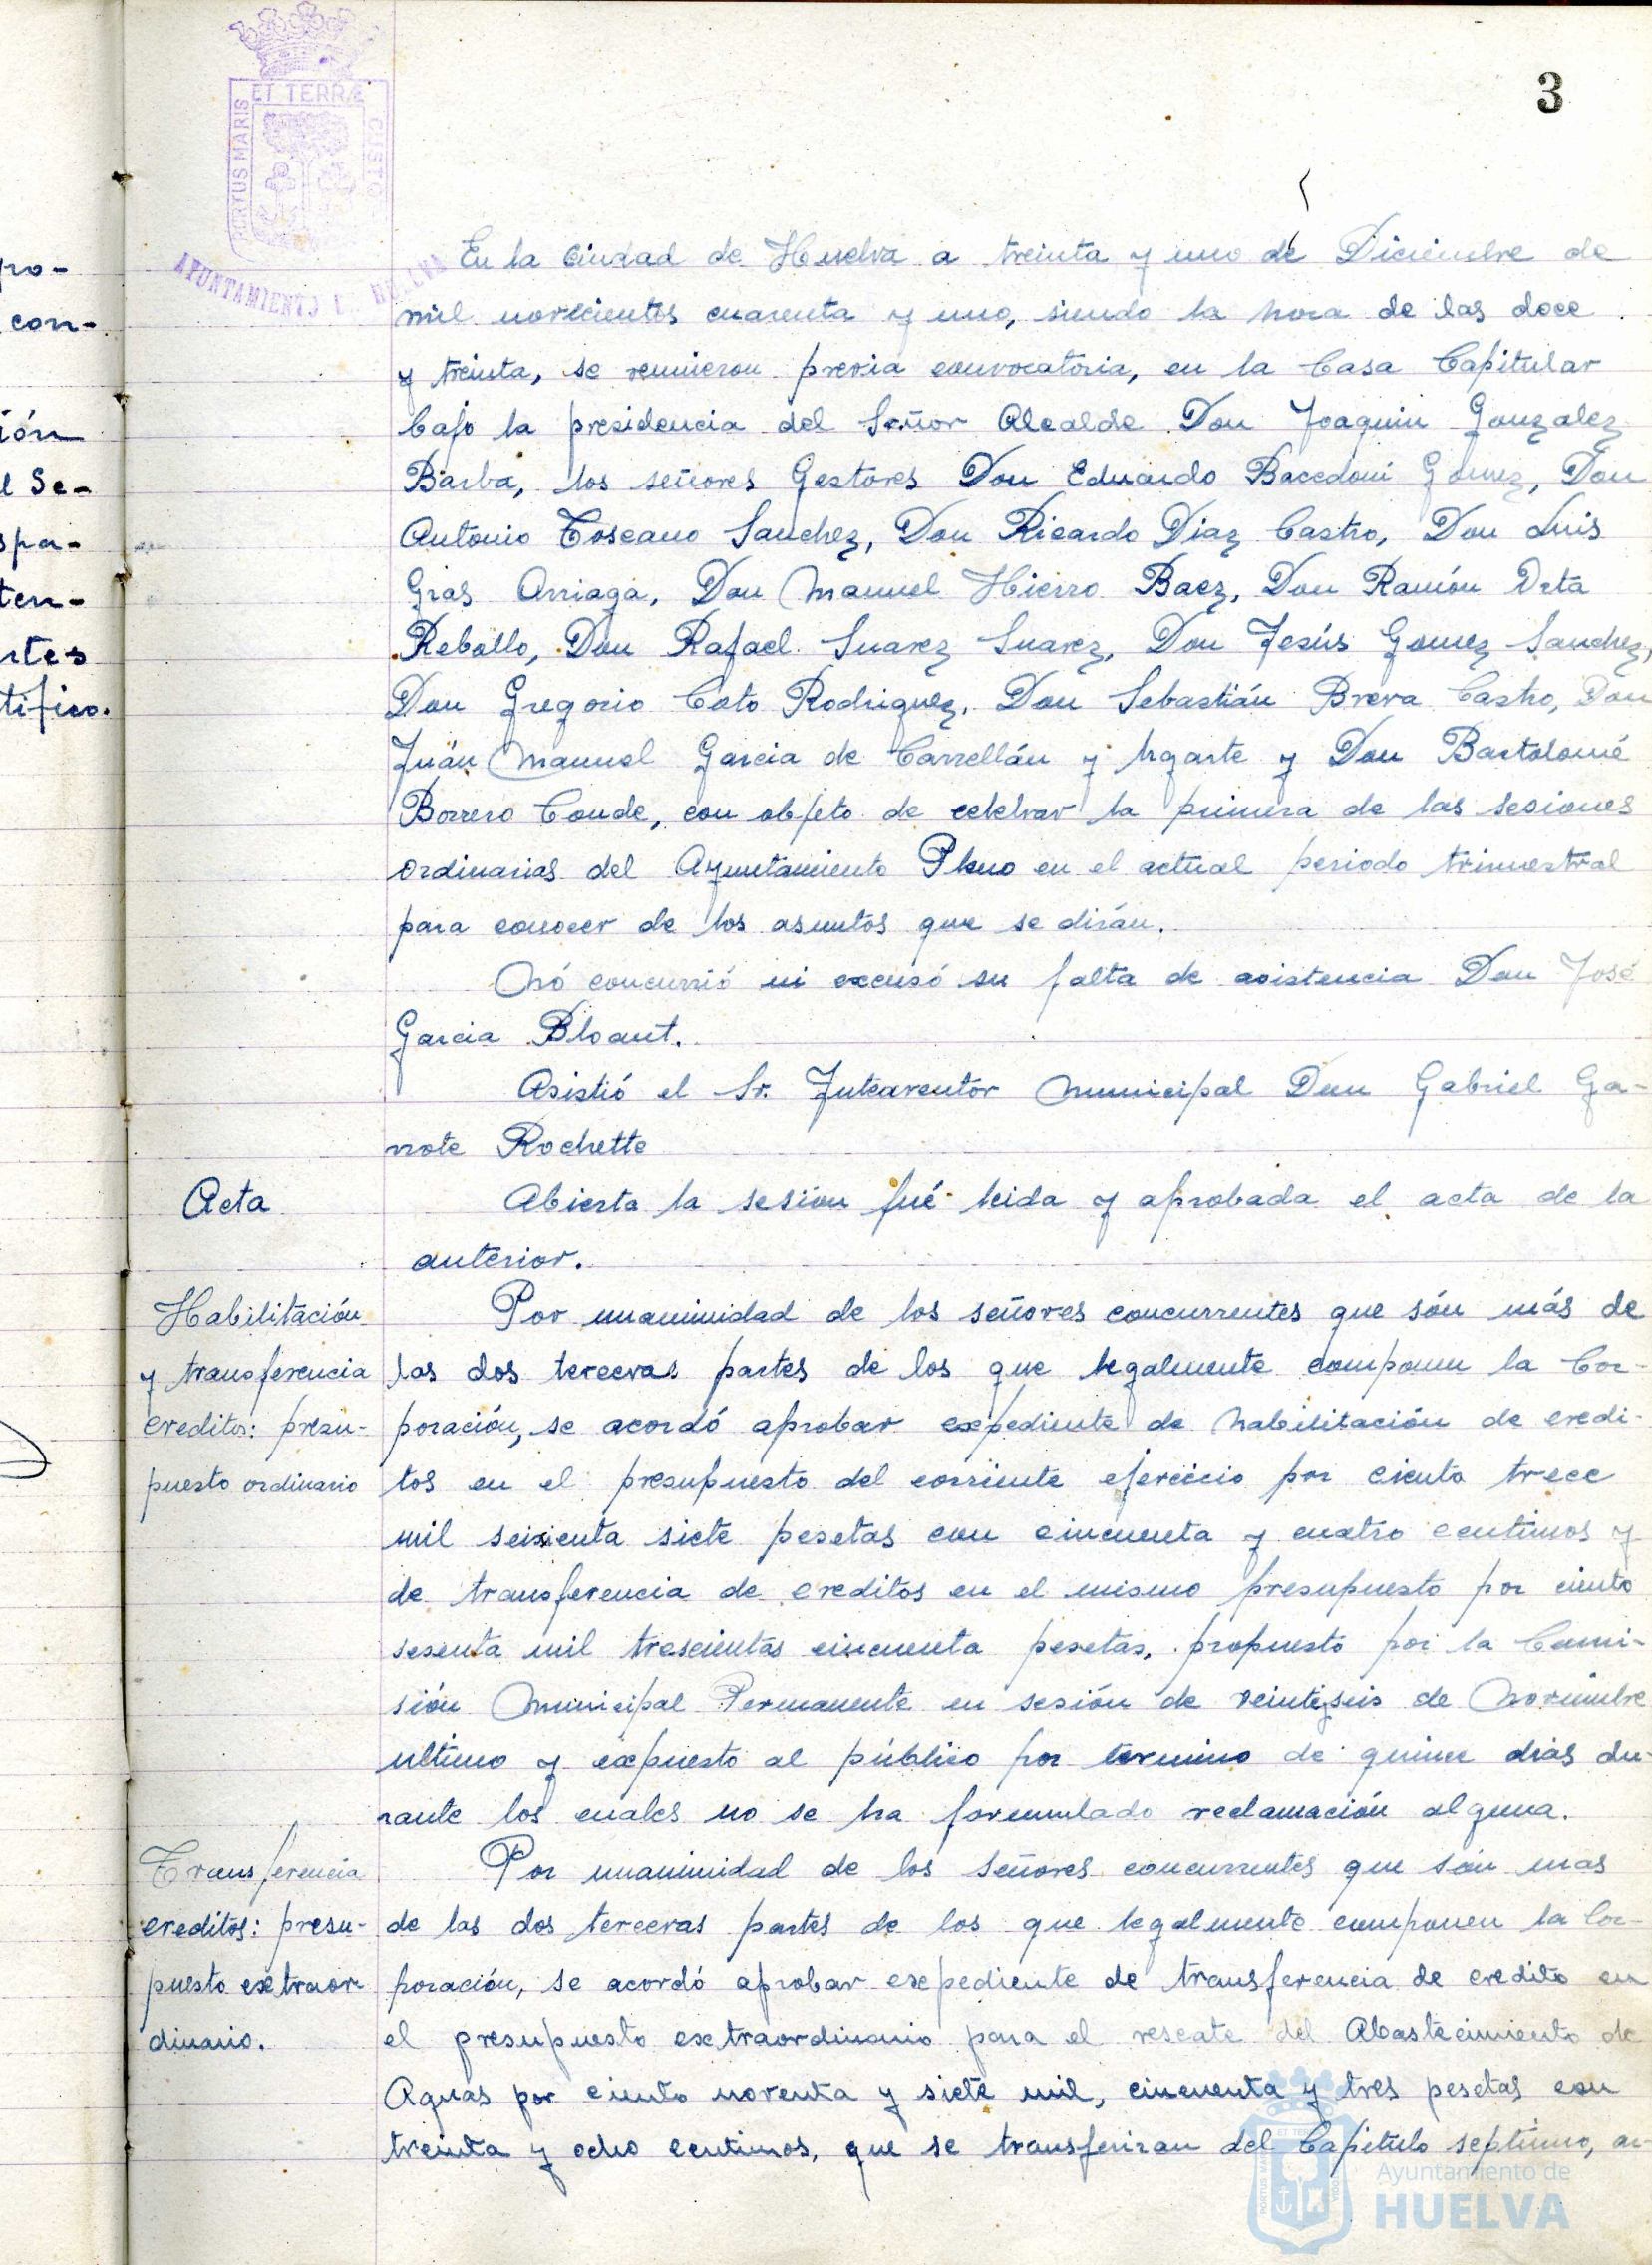 3
ET TERRÆ
PORTUS MARIS
CUSTO
AYUNTAMIENTO
pro-
con-
ión
l Se-
spa-
ten-
rtes
tifico.
En la Ciudad de Huelva a treinta y uno de Diciembre de
mil novecientos cuarenta y uno, siendo la hora de las doce
y treinta, se reunieron previa convocatoria, en la Casa Capitular
bajo la presidencia del Señor Alcalde Don Joaquin Gonzalez
Barba, los señores Gestores Don Eduardo Bacedoni Gomez, Don
Antonio Toscano Sanchez, Don Ricardo Diaz Castro, Don Luis
Gras Arriaga, Don Manuel Hierro Baez, Don Ramón Orta
Rebollo, Don Rafael Suarez Suarez, Don Jesús Gomez Sanchez,
Don Gregorio Coto Rodriguez, Don Sebastián Breva Castro, Don
Juán Manuel Garcia de Carrellán y Ugarte y Don Bartolomé
Borrero Conde, con objeto de celebrar la primera de las sesiones
ordinarias del Ayuntamiento Pleno en el actual periodo trimestral
para conocer de los asuntos que se dirán.
Nó concurrió ni excusó su falta de asistencia Don José
Garcia Bloaut.
Asistió el Sr. Interventor Municipal Don Gabriel Ga-
rrote Rochette
Acta
Abierta la sesión fué leida y aprobada el acta de la
anterior.
Habilitación
y transferencia
creditos: presu-
puesto ordinario
Por unanimidad de los señores concurrentes que són más de
las dos terceras partes de los que legalmente componen la Cor-
poración, se acordó aprobar expediente de habilitación de credi-
tos en el presupuesto del corriente ejercicio por ciento trece
mil seisienta siete pesetas con cincuenta y cuatro centimos y
de transferencia de creditos en el mismo presupuesto por ciento
sesenta mil trescientas cincuenta pesetas, propuesto por la Comi-
sión Municipal Permanente en sesión de veintiseis de Noviembre
ultimo y expuesto al público por termino de quince dias du-
rante los cuales no se ha formulado reclamación alguna.
Transferencia
creditos: presu-
puesto extraor
dinario.
Por unanimidad de los señores concurrentes que són mas
de las dos terceras partes de los que legalmente componen la Cor-
poración, se acordó aprobar expediente de transferencia de credito en
el presupuesto extraordinario para el rescate del Abastecimiento de
Aguas por ciento noventa y siete mil, cincuenta y tres pesetas con
treinta y ocho centimos, que se transferiran del Capitulo septimo, ar-
Ayuntamiento de
HUELVA